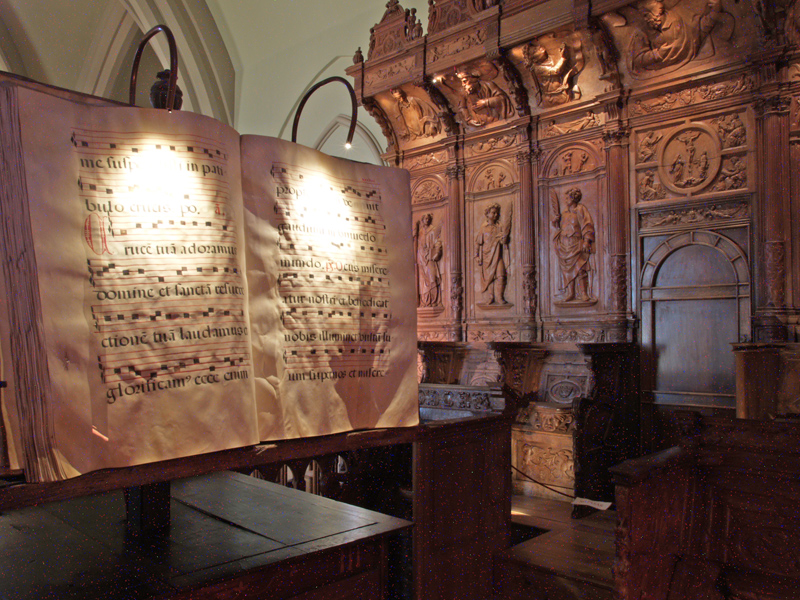 me in pati
bulo crucis po,
Crucē tuā adoramus
domine et sanctā resurre
ctionē tuā laudamus et
glorificam⁹ ecce enim
gaudiū
mundo. Deus misere
atur nostri et benedicat
nobis illuminet vultū su
um sup nos et misere